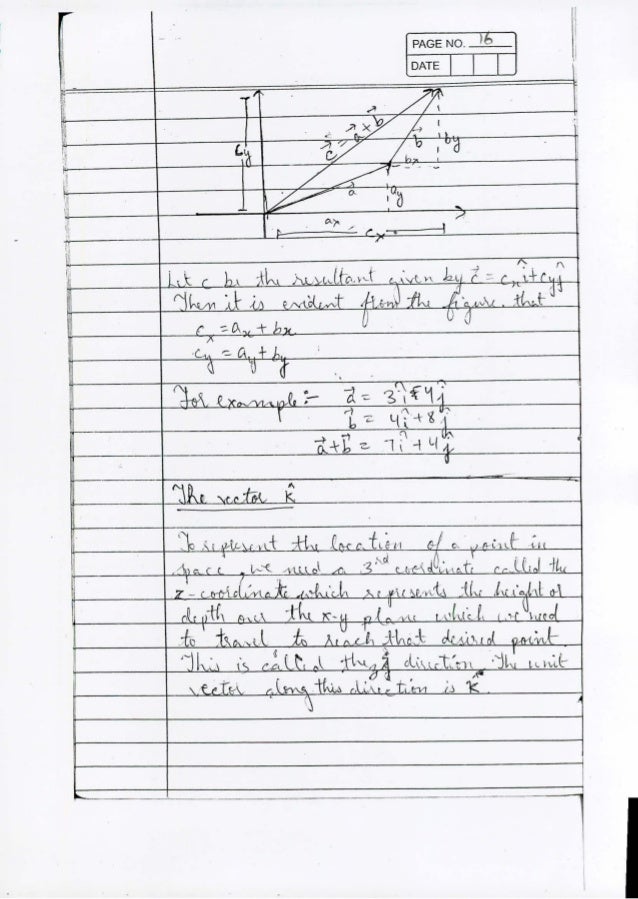 PAGE NO. 16
DATE
c⃗ = a⃗ x b⃗
cy
b⃗
by
bx
a⃗
ay
ax
cx
Let c be the resultant given by c⃗ = cxî+cyĵ
Then it is evident from the figure that
cx = ax + bx
cy = ay + by
For example :- a⃗ = 3î 4ĵ
b⃗ = 4î + 8ĵ
a⃗+b⃗ = 7î + 4ĵ
The vector k̂
To represent the location of a point in
space, we need a 3rd coordinate called the
z-coordinate which represents the height or
depth over the x-y plane which we need
to travel to reach that desired point.
This is called the direction. The unit
vector along this direction is k̂.